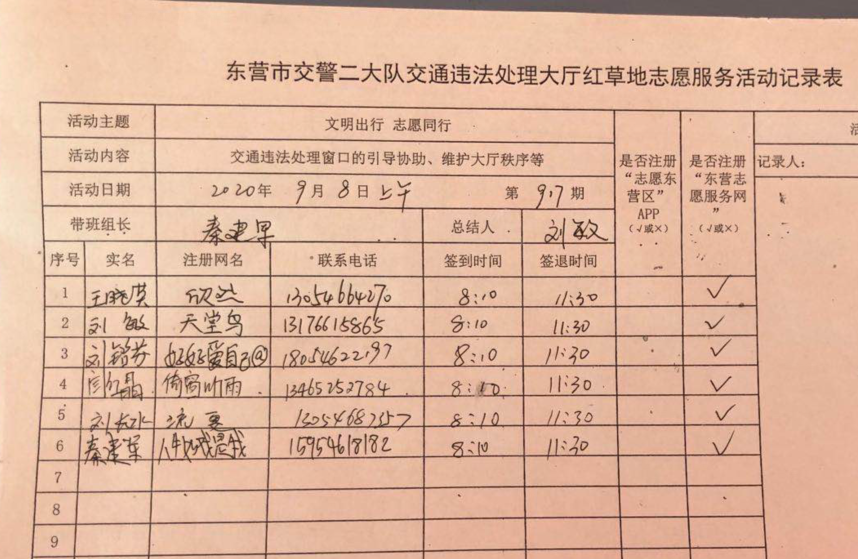 东营市交警二大队交通违法处理大厅红草地志愿服务活动记录表
活动主题 文明出行 志愿同行
活动内容 交通违法处理窗口的引导协助、维护大厅秩序等
活动日期 2020年 9月 8日 上午 第 9.7 期
带班组长 秦建军 总结人 刘敏
是否注册“志愿东营区”APP（√或×） 是否注册“东营志愿服务网”（√或×）
记录人：
序号 实名 注册网名 联系电话 签到时间 签退时间
1 王晓英 欣然 13054664270 8:10 11:30 ✓
2 刘敏 天堂鸟 13176615865 8:10 11:30 ✓
3 刘 好好爱自己@ 18054622197 8:10 11:30 ✓
4 闫红晶 倚窗听雨 13465252784 8:10 11:30 ✓
5 刘长水 8:10 11:30 ✓
6 秦建军 15954618182 8:10 11:30 ✓
7
8
9